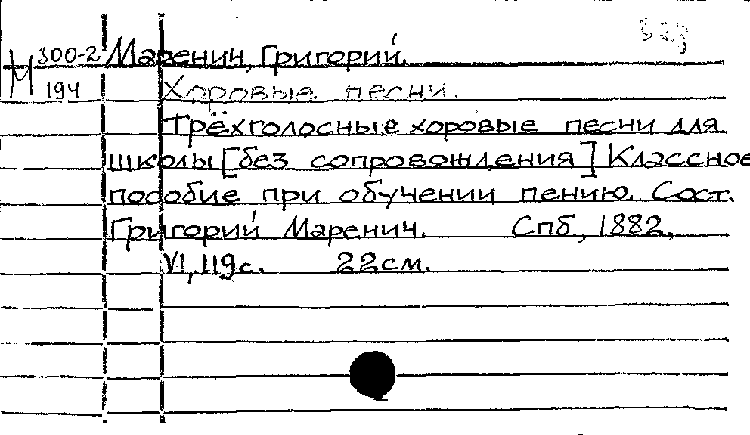 М 300-2 Маренич, Григорий.
194 Хоровые песни.
Трёхголосные хоровые песни для
школы [без сопровождения] Классное
пособие при обучении пению. Сост.
Григорий Маренич. Спб, 1882,
VI, 119 с. 22 см.